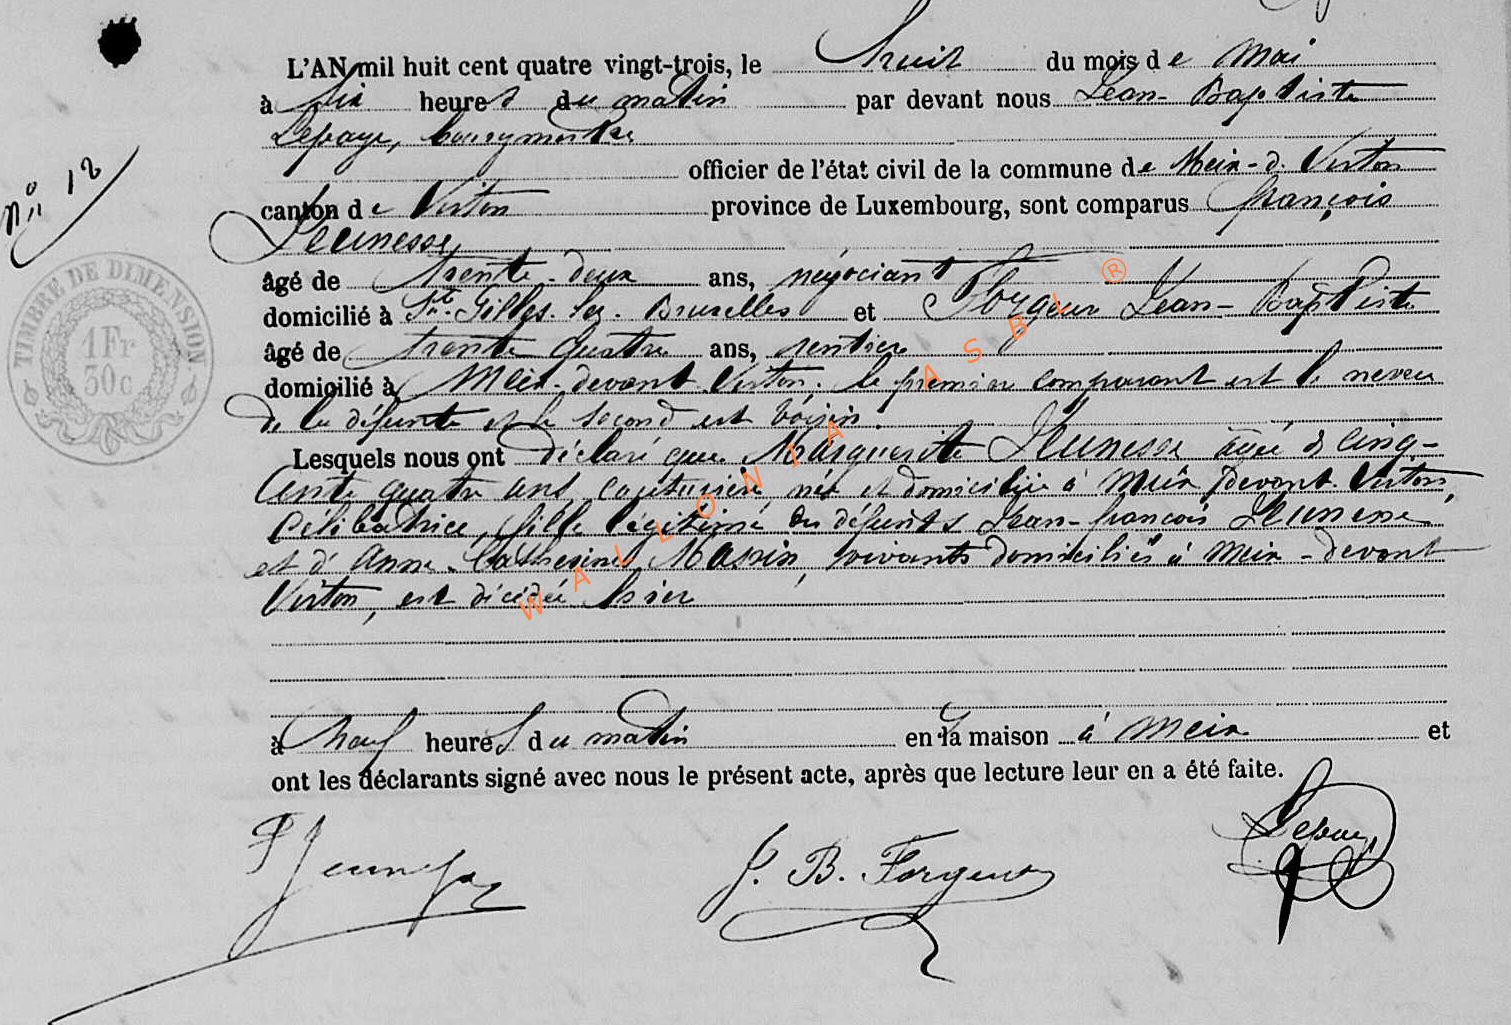 L'AN mil huit cent quatre vingt-trois, le huit du mois de Mai
à six heures du matin par devant nous Jean-Baptiste
Lepage, bourgmestre
officier de l'état civil de la commune de Meix-d. Virton
N° 12
canton de Virton province de Luxembourg, sont comparus François
Jeunesse,
âgé de trente-deux ans, négociant
domicilié à St. Gilles-lez-Bruxelles et Forgeur Jean-Baptiste
âgé de trente quatre ans, rentier
domicilié à Meix-devant-Virton. le premier comparant est le neveu
de la défunte et le second est voisin.
Lesquels nous ont déclaré que Marguerite Jeunesse agée de cinq-
ante quatre ans, couturière née et domiciliée à Meix devant Virton,
Célibatrice, fille légitime des défunts Jean-François Jeunesse
et d'Anne-Catherine Massin, vivants domiciliés à Meix-devant
Virton, est décédée hier
à neuf heures du matin en la maison à Meix et
ont les déclarants signé avec nous le présent acte, après que lecture leur en a été faite.
F Jeunesse J. B. Forgeur Lepage
TIMBRE DE DIMENSION
1 Fr
30 c
WALLONIA ASBL ®